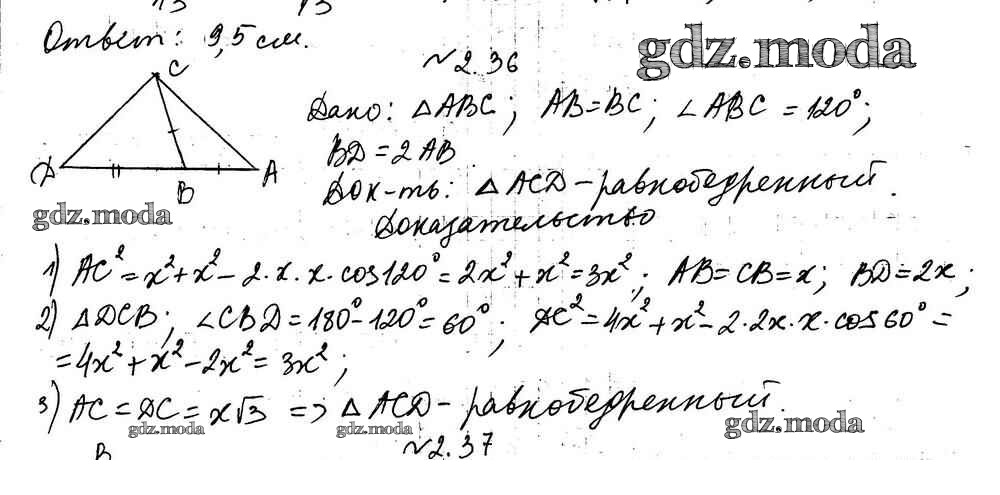 Ответ: 9,5 см.
gdz.moda
№2.36
C
D
B
A
Дано: △ABC; AB=BC; ∠ABC=120°;
BD=2AB
Док-ть: △ACD-равнобедренный.
gdz.moda
Доказательство
1) AC²=x²+x²-2·x·x·cos120°=2x²+x²=3x²; AB=CB=x; BD=2x;
2) △DCB; ∠CBD=180°-120°=60°; DC²=4x²+x²-2·2x·x·cos60°=
=4x²+x²-2x²=3x²;
3) AC=DC=x√3 => △ACD-равнобедренный.
gdz.moda
gdz.moda
gdz.moda
№2.37
B